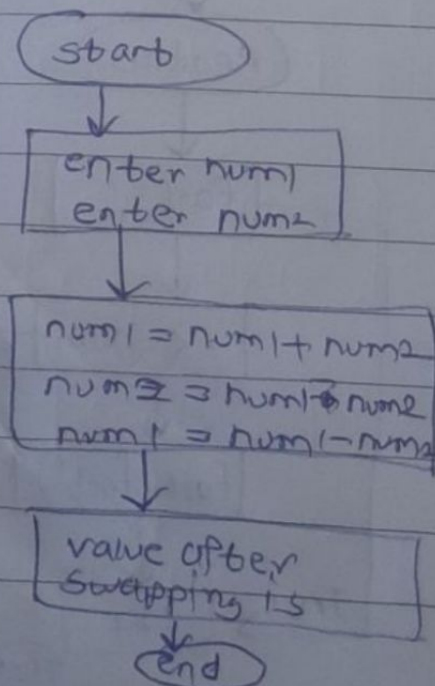 start
enter num1
enter num2
num1 = num1 + num2
num2 = num1 - num2
num1 = num1 - num2
value after
swapping is
end